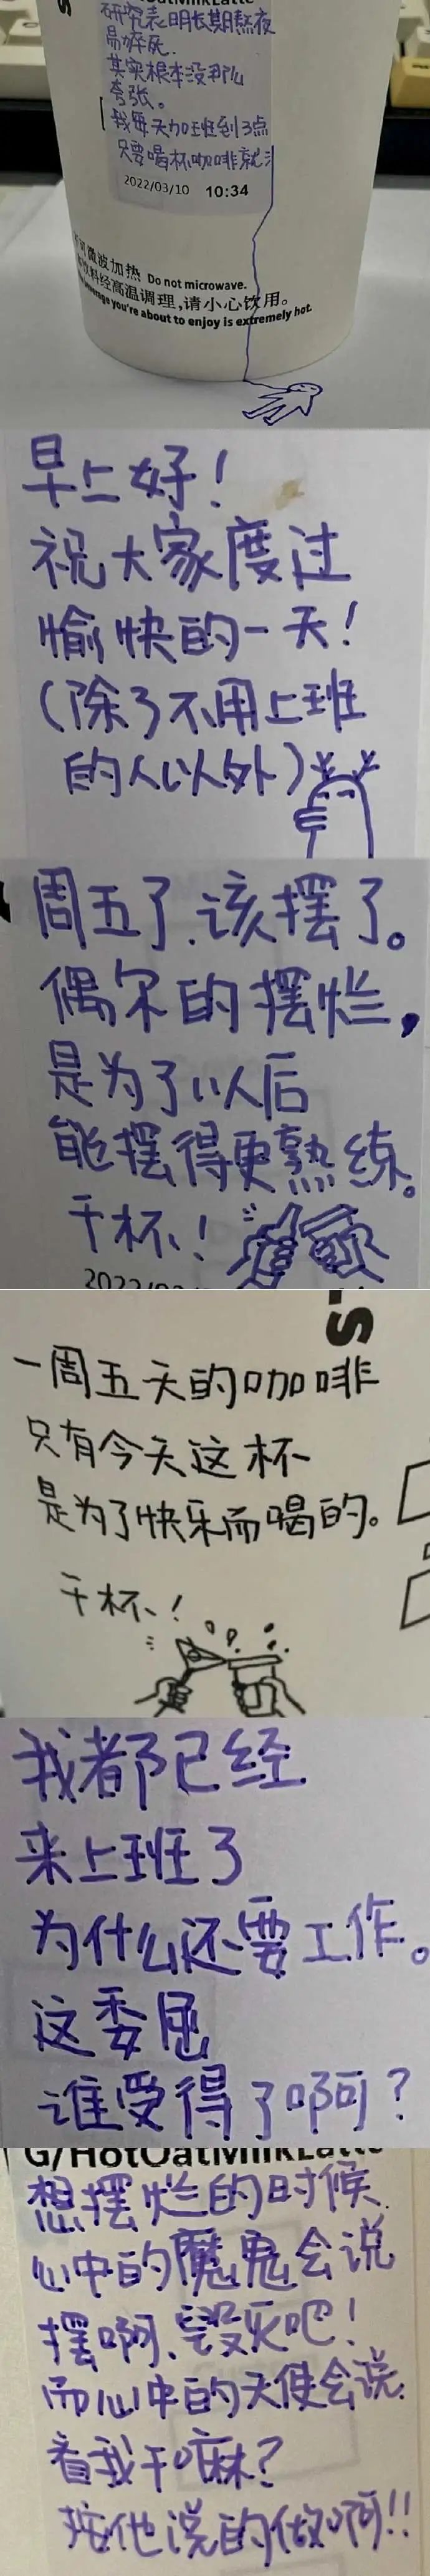 研究表明长期熬夜
易猝死.
其实根本没那么
夸张。
我每天加班到3点
只要喝杯咖啡就
2022/03/10 10:34
微波加热 Do not microwave.
饮料经高温调理,请小心饮用。
you're about to enjoy is extremely hot.
早上好!
祝大家度过
愉快的一天!
(除了不用上班
的人以外)
周五了.该摆了。
偶尔的摆烂,
是为了以后
能摆得更熟练。
干杯!
一周五天的咖啡
只有今天这杯
是为了快乐而喝的。
干杯!
我都已经
来上班了
为什么还要工作。
这委屈
谁受得了啊?
G/HotOatMilkLatte
想摆烂的时候.
心中的魔鬼会说
摆啊、毁灭吧!
而心中的天使会说.
看我干嘛?
按他说的做啊!!